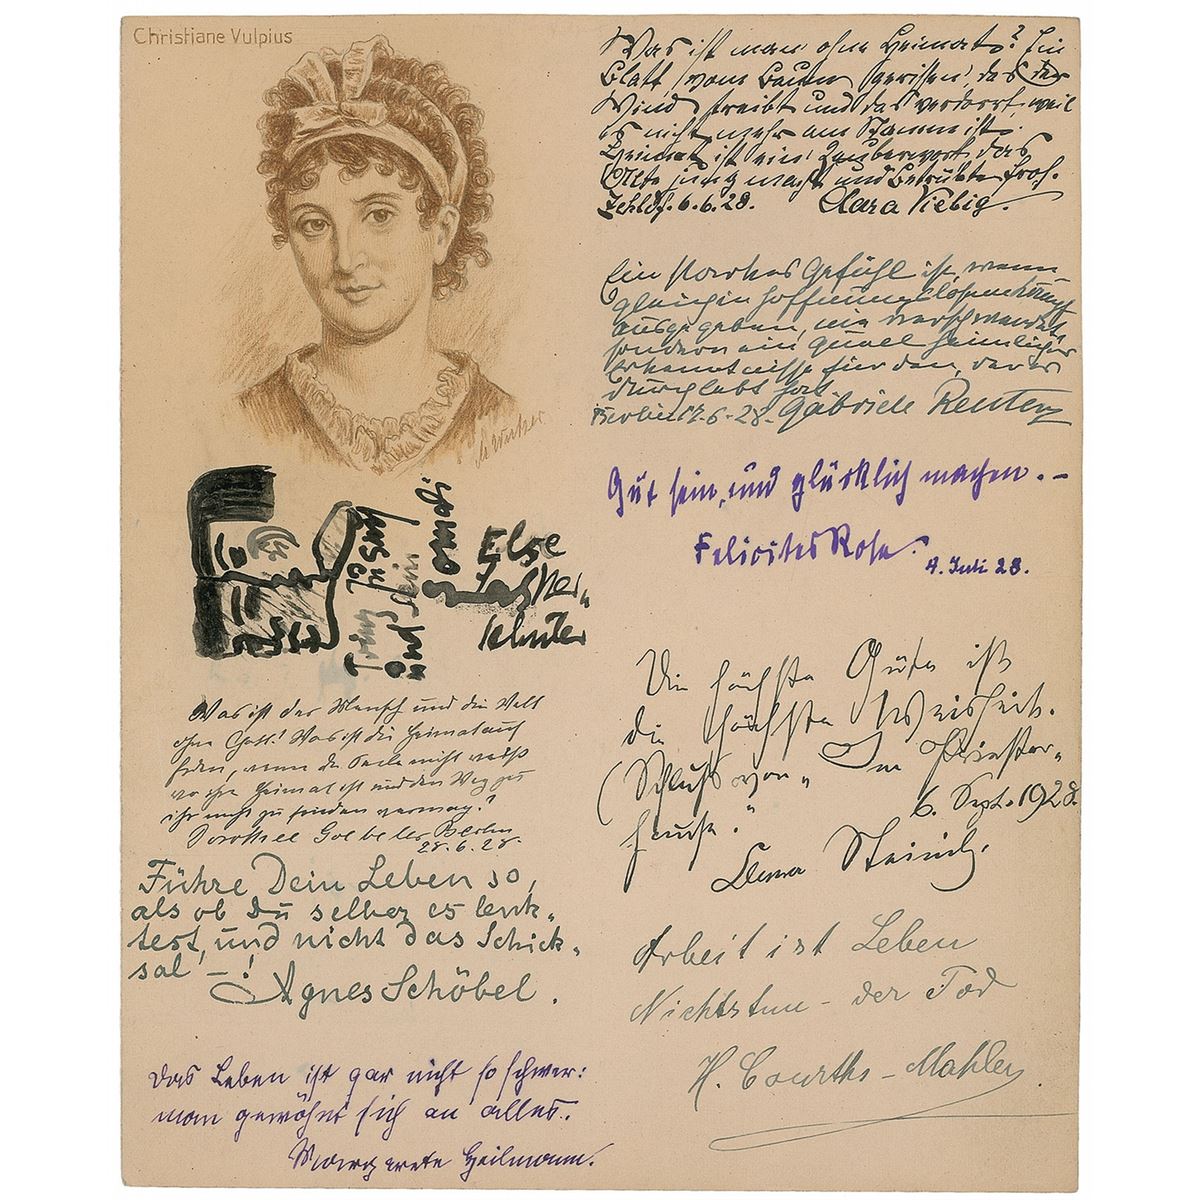 Christiane Vulpius
Was ist man ohne Heimat? Ein
Blatt, vom Baum gerissen, das der
Wind treibt und das verdorrt, weil
es nicht mehr am Stamm ist.
Heimat ist ein Zauberwort, das
Alte jung macht und Betrübte froh.
Zehldf. 6.6.28. Clara Viebig.
Ein starkes Gefühl ist, wenn
gleich in hoffnungsloser
ausgegeben, nie verschwendet
sondern ein Quell heimlicher
Erkenntnisse für den, der es
durchlebt hat
Berlin 17-6-28. Gabriele Reuter
Gut sein, und glücklich machen. -
Felicitas Rose.
4. Juli 28.
Die höchste Güte ist
die höchste Weisheit.
(Schluß von „Im Priester-
hause."
6. Sept. 1928.
Prinz Jussuf
und sein
Else
Lasker-
Schüler
Was ist der Mensch und die Welt
ohne Gott! Was ist die Heimat auf
Erden, wenn die Seele nicht weiß
wo ihre Heimat ist und den Weg zu
ihr nicht zu finden vermag?
Dorothee Goebeler Berlin
28.6.28.
Führe Dein Leben so,
als ob du selber es lenk-
test, und nicht das Schick-
sal -!
Agnes Schöbel.
Arbeit ist Leben
Nichtstun - der Tod
H. Courths-Mahler.
Das Leben ist gar nicht so schwer:
man gewöhnt sich an alles.
Margarete Heilmann.